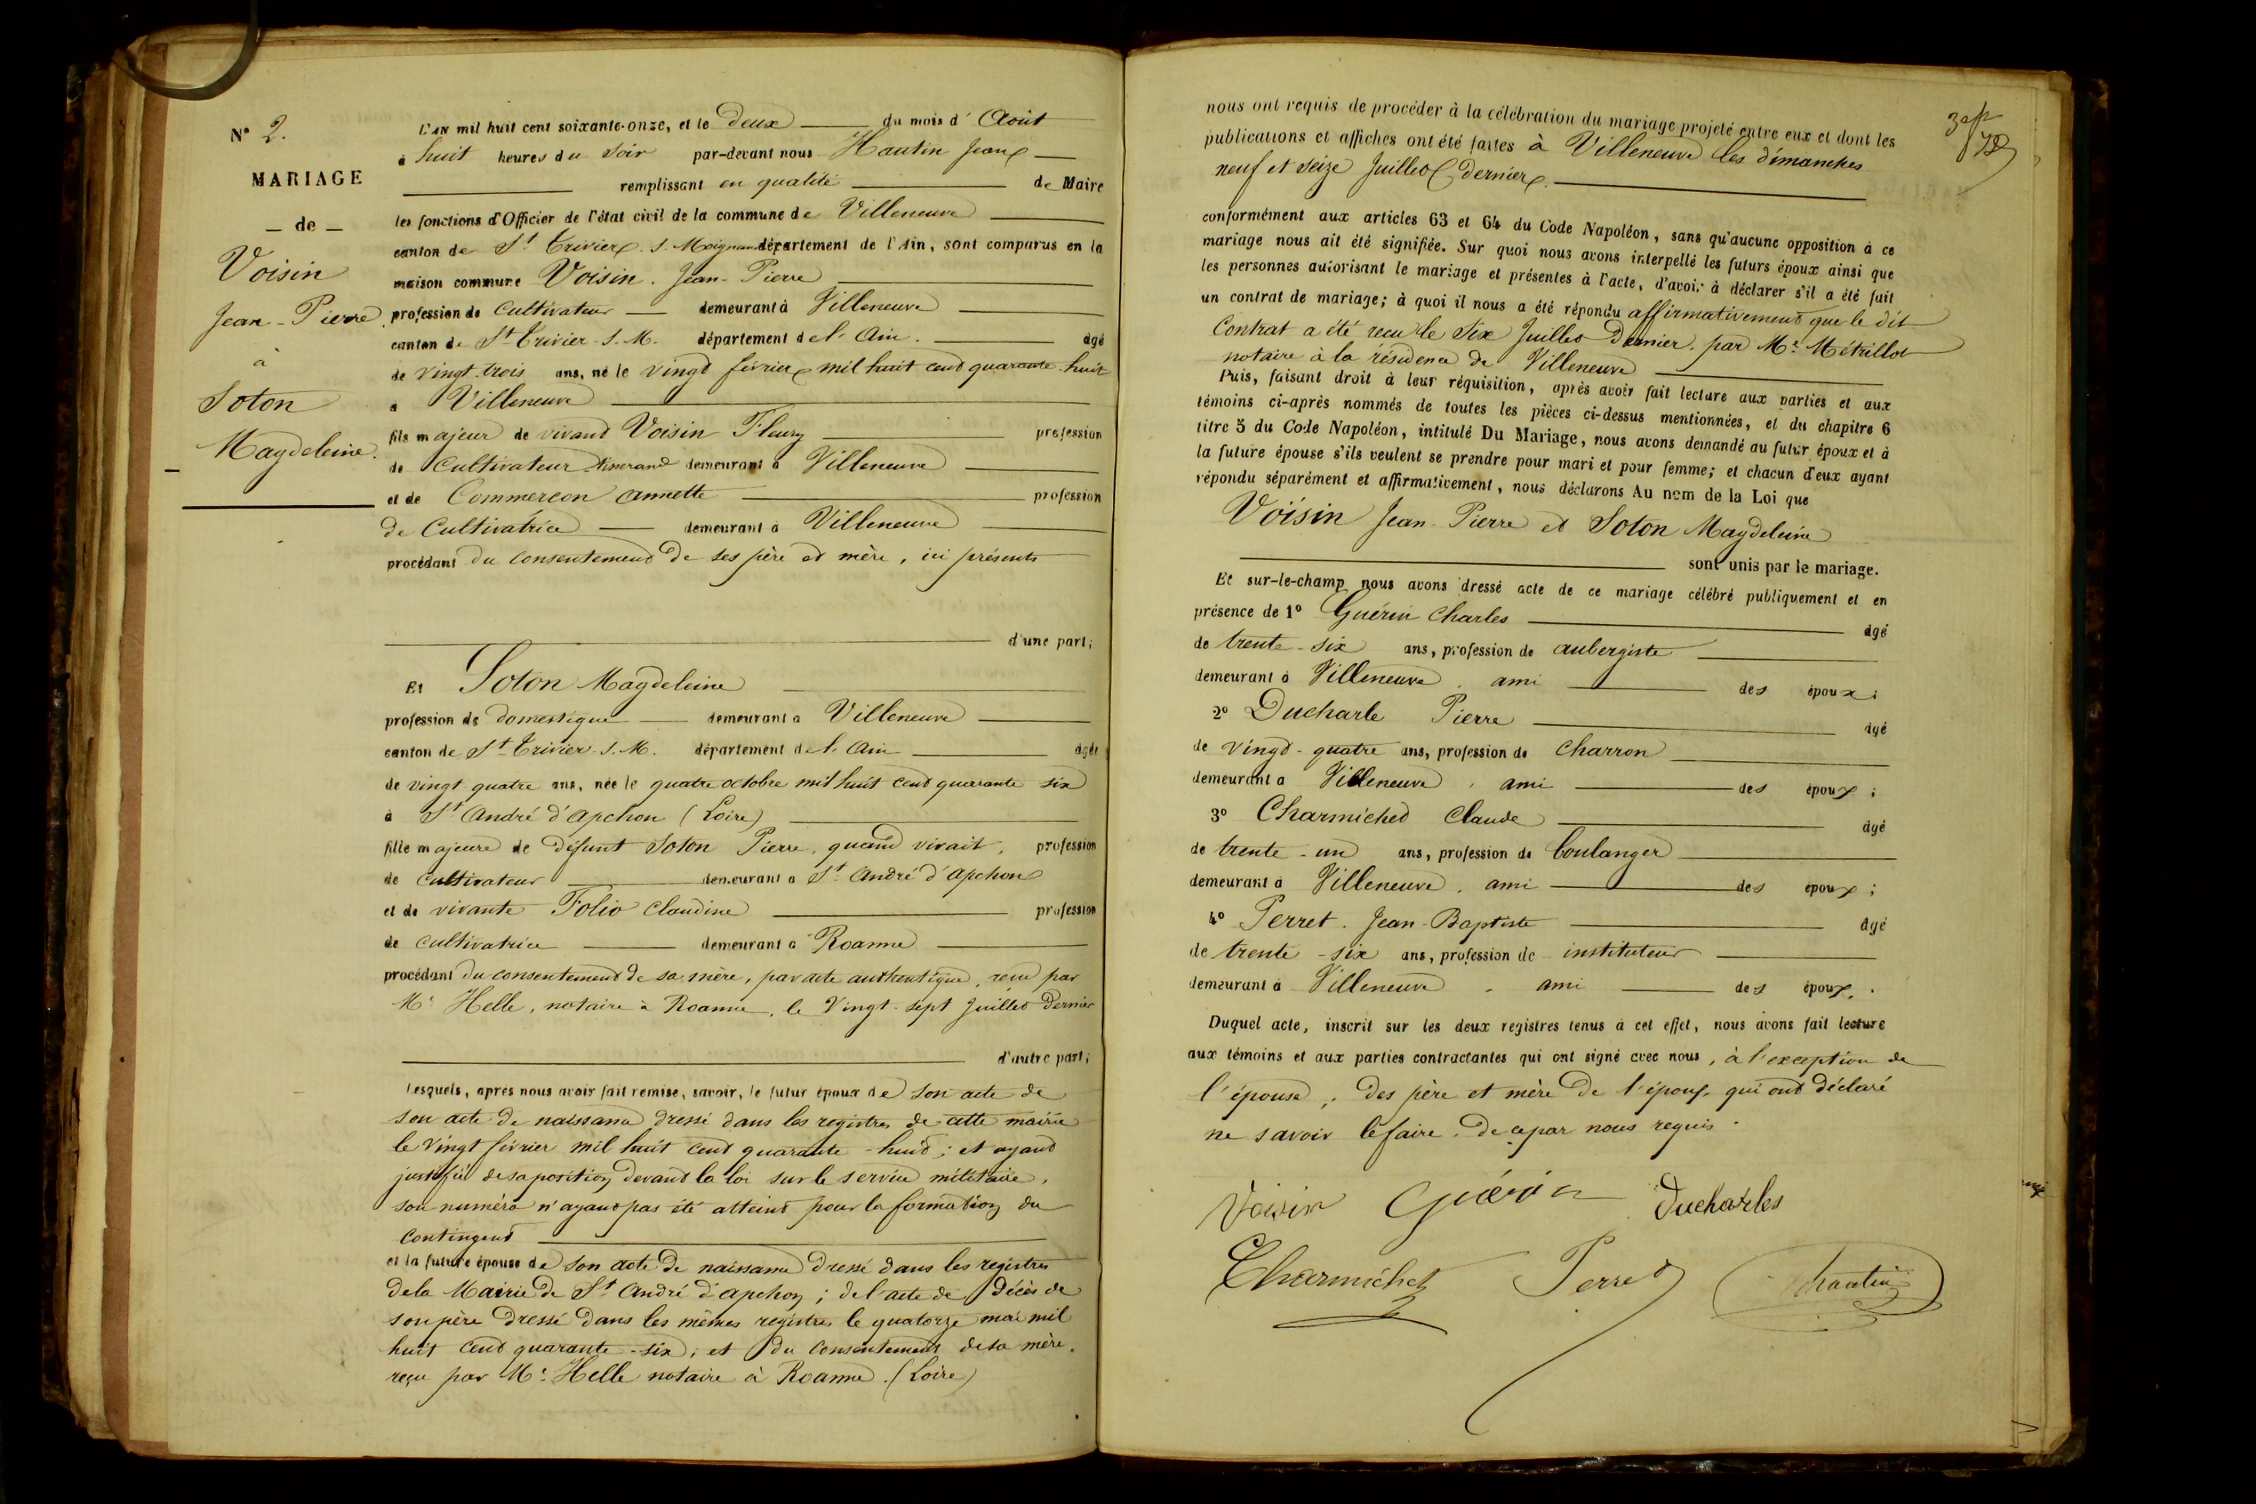 N° 2.
MARIAGE
— de —
Voisin
Jean-Pierre
à
Soton
Magdeleine.
L'an mil huit cent soixante-onze, et le deux du mois d' Août
à huit heures du soir par-devant nous Hautin Jean
remplissant en qualité de Maire
les fonctions d'Officier de l'état civil de la commune de Villeneuve
canton de St Trivier s. Moignans département de l'Ain, sont comparus en la
maison commune Voisin. Jean-Pierre
profession de cultivateur demeurant à Villeneuve
canton de St Trivier-s.-M. département de l'Ain. âgé
de vingt-trois ans, né le vingt février mil huit cent quarante-huit
à Villeneuve
fils majeur de vivant Voisin Fleury profession
de cultivateur demeurant à Villeneuve
et de Commerçon annette profession
de Cultivatrice demeurant à Villeneuve
procédant du consentement de ses père et mère, ici présents
d'une part;
Et Soton Magdeleine
profession de domestique demeurant à Villeneuve
canton de St Trivier-s.-M. département de l'Ain âgée
de vingt quatre ans, née le quatre octobre mil huit cent quarante six
à St André d'apchon (Loire)
fille majeure de défunt Soton Pierre, quand vivait, profession
de cultivateur demeurant à St André d'apchon
et de vivante Folio Claudine profession
de cultivatrice demeurant à Roanne
procédant du consentement de sa mère, par acte authentique, reçu par
Me Helle, notaire à Roanne, le Vingt-sept Juillet dernier
d'autre part;
Lesquels, après nous avoir fait remise, savoir, le futur époux de son acte de
son acte de naissance dressé dans les registres de cette mairie
le vingt février mil huit cent quarante-huit; et ayant
justifié de sa position devant la loi sur le service militaire,
son numéro n'ayant pas été atteint pour la formation du
contingent
et la future épouse de son acte de naissance dressé dans les registres
de la Mairie de St André d'apchon; de l'acte de décès de
son père dressé dans les mêmes registres le quatorze mai mil
huit cent quarante-six; et du consentement de sa mère.
reçu par Me Helle notaire à Roanne. (Loire)
nous ont requis de procéder à la célébration du mariage projeté entre eux et dont les
publications et affiches ont été faites à Villeneuve les dimanches
neuf et seize Juillet dernier.
conformément aux articles 63 et 64 du Code Napoléon, sans qu'aucune opposition à ce
mariage nous ait été signifiée. Sur quoi nous avons interpellé les futurs époux ainsi que
les personnes autorisant le mariage et présentes à l'acte, d'avoir à déclarer s'il a été fait
un contrat de mariage; à quoi il nous a été répondu affirmativement que le dit
Contrat a été reçu le Six Juillet Dernier. par Me Métrillot
notaire à la résidence de Villeneuve
Puis, faisant droit à leur réquisition, après avoir fait lecture aux parties et aux
témoins ci-après nommés de toutes les pièces ci-dessus mentionnées, et du chapitre 6
titre 5 du Code Napoléon, intitulé Du Mariage, nous avons demandé au futur époux et à
la future épouse s'ils veulent se prendre pour mari et pour femme; et chacun d'eux ayant
répondu séparément et affirmativement, nous déclarons Au nom de la Loi que
Voisin Jean-Pierre et Soton Magdeleine
sont unis par le mariage.
Et sur-le-champ nous avons dressé acte de ce mariage célébré publiquement et en
présence de 1° Guérin Charles âgé
de trente-six ans, profession de aubergiste
demeurant à Villeneuve, ami des époux;
2° Ducharle Pierre âgé
de vingt-quatre ans, profession de Charron
demeurant à Villeneuve, ami des époux;
3° Charmichet Claude âgé
de trente-un ans, profession de boulanger
demeurant à Villeneuve, ami des époux;
4° Perret. Jean-Baptiste âgé
de trente-six ans, profession de instituteur
demeurant à Villeneuve, ami des époux.
Duquel acte, inscrit sur les deux registres tenus à cet effet, nous avons fait lecture
aux témoins et aux parties contractantes qui ont signé avec nous, à l'exception de
l'épouse, des père et mère de l'époux, qui ont déclaré
ne savoir le faire. de ce par nous requis.
Voisin Guérin Ducharles
Charmichet Perret Hautin